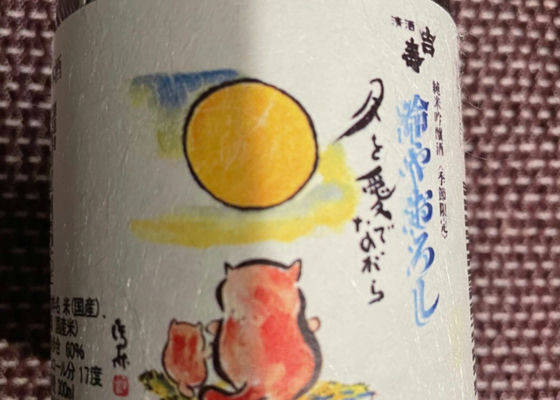 清酒
吉寿
純米吟醸酒(季節限定)
冷やおろし
月を愛で
ながら
酒
米(国産)、
国産米)
合 60%
コール分 17度
300ml